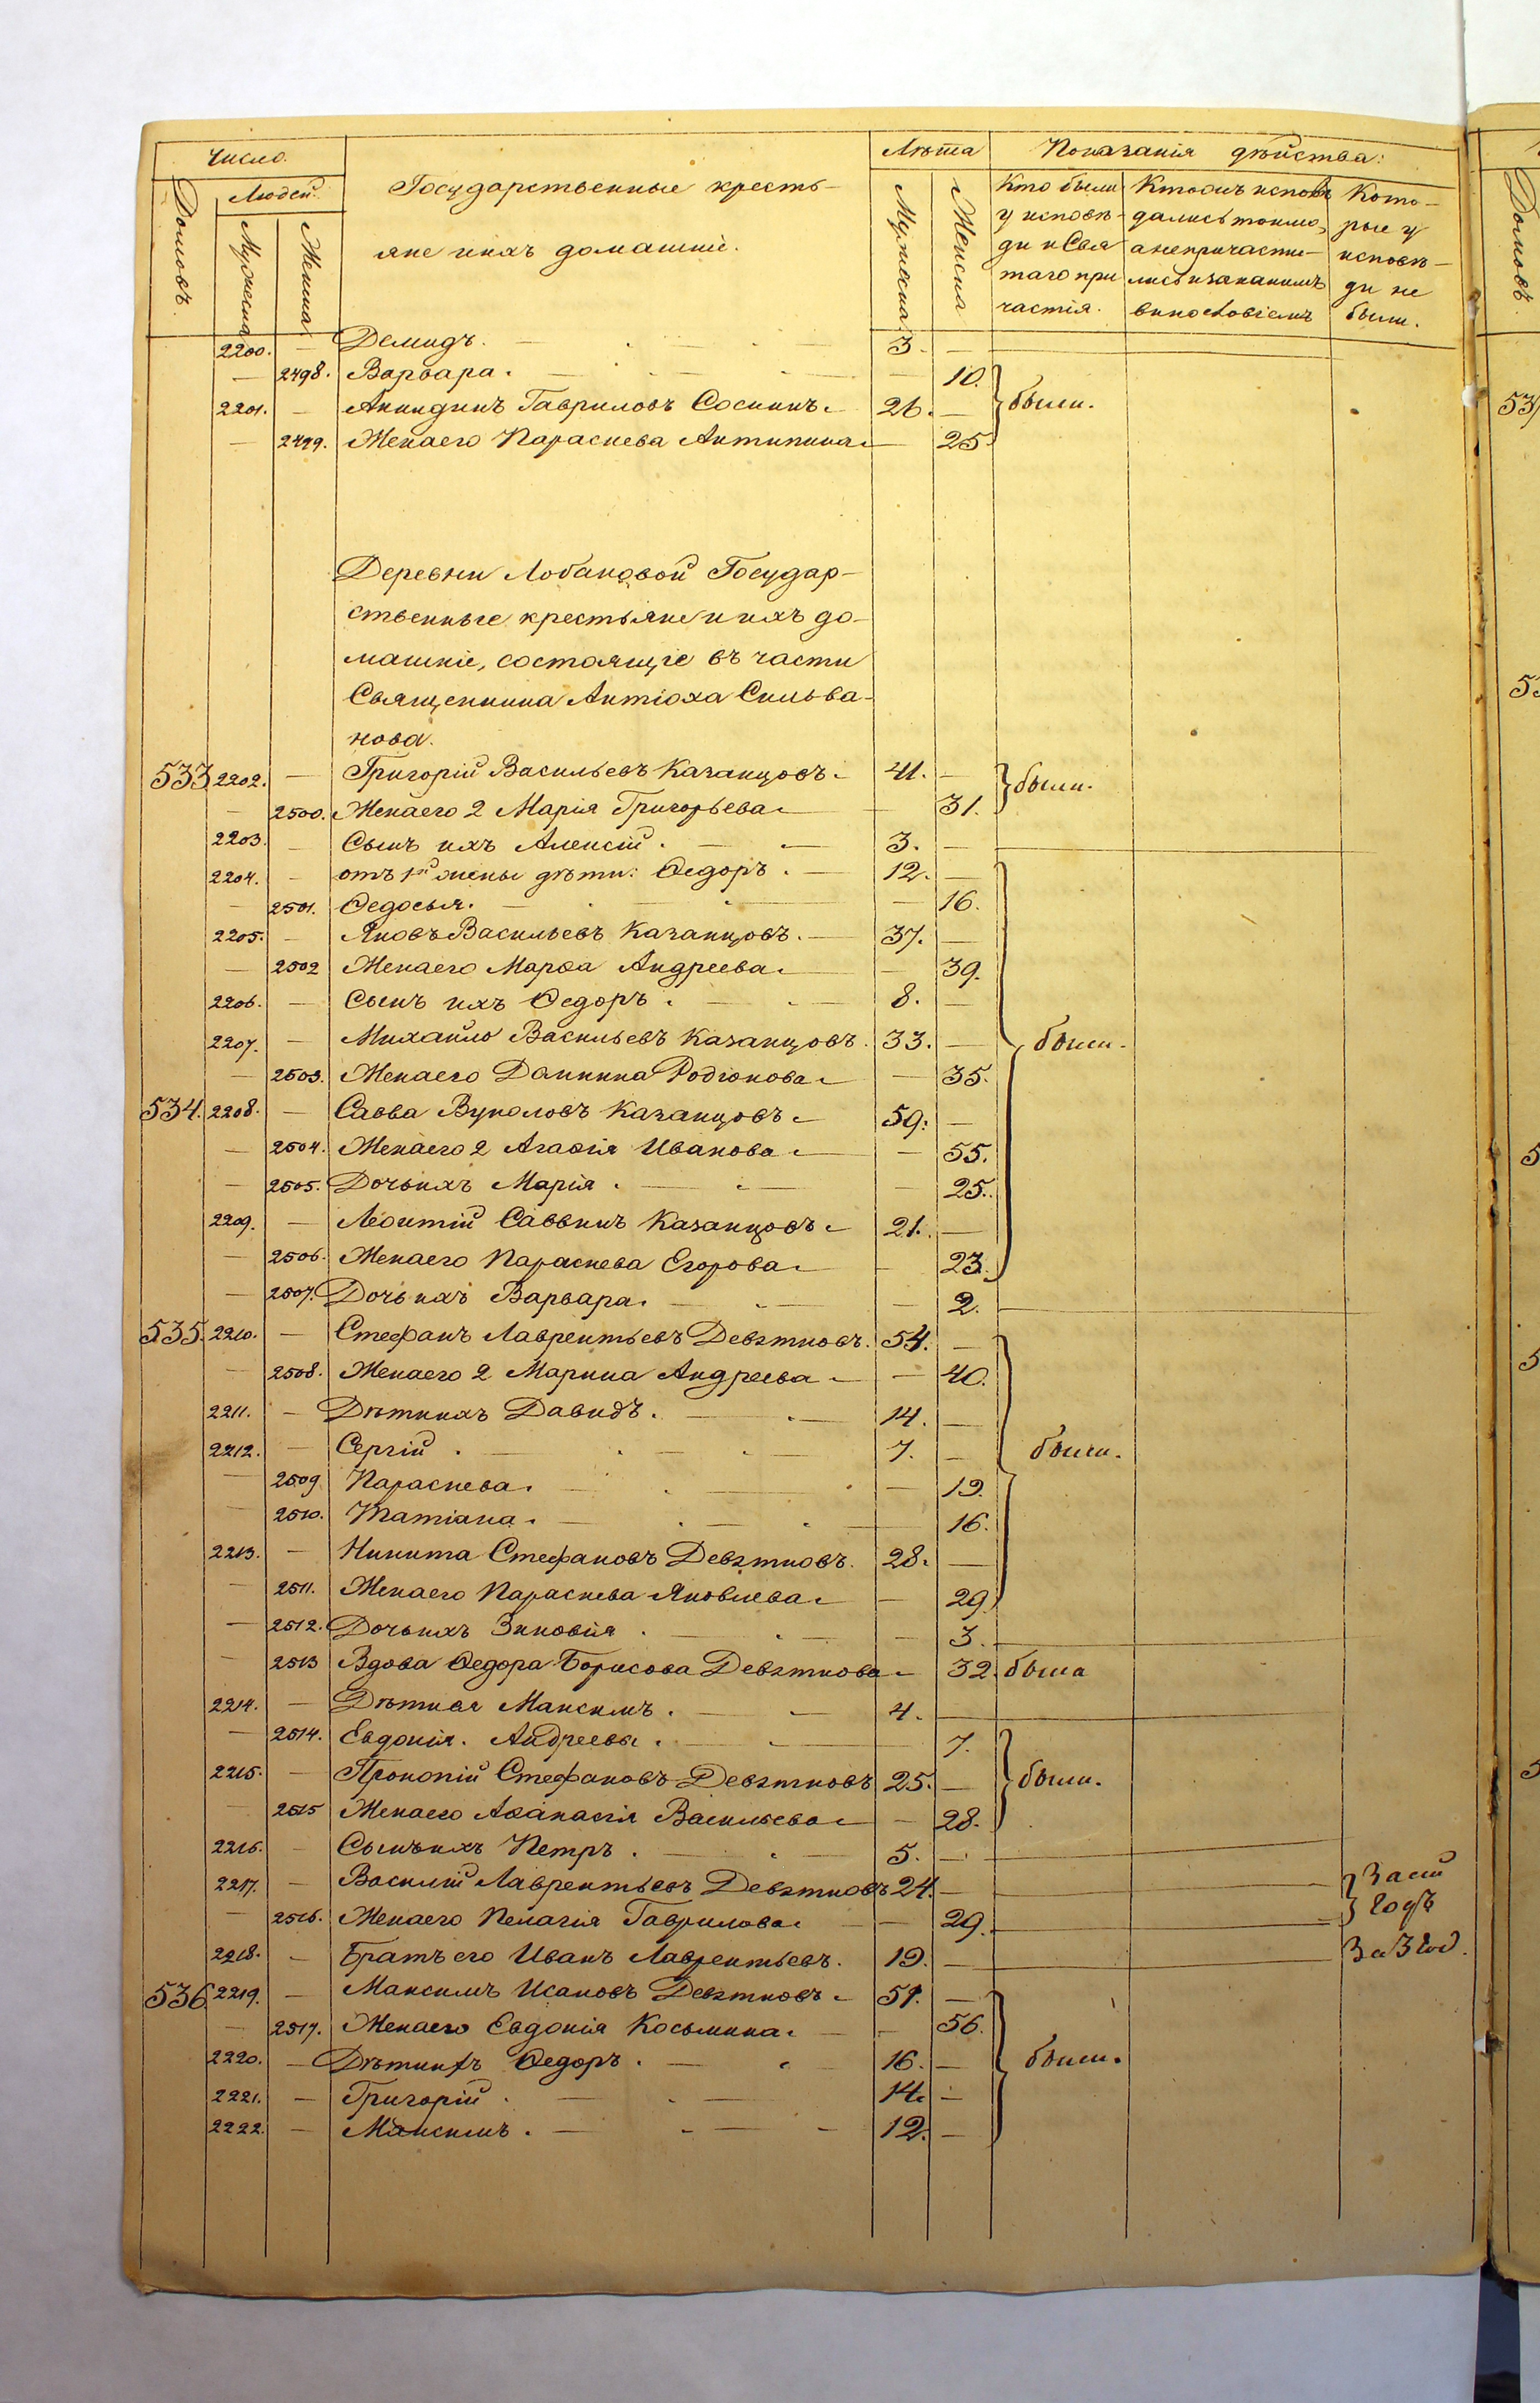 Число.
Людей.
Домовъ.
Мужеска
Женска
Государственные кресть-
яне и ихъ домашніе.
Лѣта
Мужеска
Женска
Показанія дѣйства:
Кто были
у исповѣ-
ди и Свя
таго при
частія.
Кто
дались токмо,
а непричасти-
лись и за какимъ
винословіемъ
Кото-
рые у
исповѣ-
ди не
были.
2200. — Демидъ. 3. —
— 2498. Варвара. — 10.
2201. — Акиндинъ Гавриловъ Соснинъ. 26. — были.
— 2499. Жена его Параскева Антипина. — 25.
Деревни Лобановой Государ-
ственные крестьяне и ихъ до-
машніе, состоящіе въ части
Священника Антіоха Сильва-
нова.
533 2202. — Григорій Васильевъ Казанцовъ. 41. — были.
— 2500. Жена его 2 Марія Григорьева. — 31.
2203. — Сынъ ихъ Алексій. 3. —
2204. — отъ 1й жены дѣти: Ѳедоръ. 12. —
— 2501. Ѳедосья. — 16.
2205. — Яковъ Васильевъ Казанцовъ. 37. —
— 2502 Жена его Марѳа Андреева. — 39.
2206. — Сынъ ихъ Ѳедоръ. 8. —
2207. — Михайло Васильевъ Казанцовъ. 33. — были.
— 2503. Жена его Домникиа Родіонова. — 35.
534. 2208. — Савва Вуколовъ Казанцовъ. 59. —
— 2504. Жена его 2 Агаѳія Иванова. — 55.
— 2505. Дочь ихъ Марія. — 25.
2209. — Леонтій Саввинъ Казанцовъ. 21. —
— 2506. Жена его Параскева Егорова. — 23.
— 2507. Дочь ихъ Варвара. — 2.
535. 2210. — Стефанъ Лаврентьевъ Девятковъ. 54. —
— 2508. Жена его 2 Марина Андреева. — 40.
2211. — Дѣти ихъ Давидъ. 14. —
2212. — Сергій. 7. — были.
— 2509. Параскева. — 19.
— 2510. Татіана. — 16.
2213. — Никита Стефановъ Девятковъ. 28. —
— 2511. Жена его Параскева Яковлева. — 29.
— 2512. Дочь ихъ Зиновія. — 3.
— 2513 Вдова Ѳедора Борисова Девяткова. 32. была
2214. — Дѣти ея Максимъ. 4. —
— 2514. Евдокія. Андреевы. 7.
2215. — Прокопій Стефановъ Девятковъ 25. — были.
— 2515 Жена его Аѳанасія Васильева. — 28.
2216. — Сынъ ихъ Петръ. 5. —
2217. — Василій Лаврентьевъ Девятковъ 24. — За сій
— 2516. Жена его Пелагія Гаврилова. — 29. годъ
2218. — Братъ его Иванъ Лаврентьевъ. 19. — За 3 год.
536 2219. — Максимъ Исаковъ Девятковъ. 51. —
— 2517. Жена его Евдокія Косьмина. — 56.
2220. — Дѣти ихъ Ѳедоръ. 16. — были.
2221. — Григорій. 14. —
2222. — Максимъ. 12. —
Домовъ.